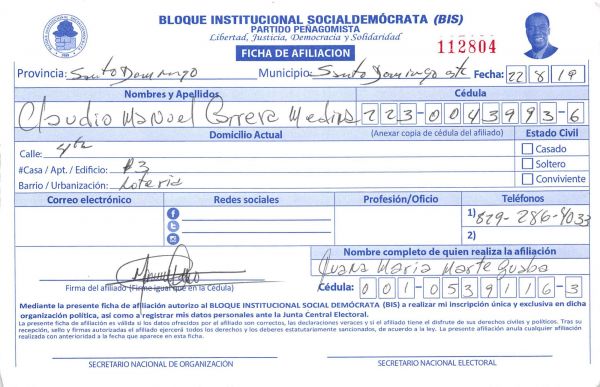 BLOQUE INSTITUCIONAL SOCIALDEMÓCRATA (BIS)
PARTIDO PEÑAGOMISTA
Libertad, Justicia, Democracia y Solidaridad
FICHA DE AFILIACION
112804
Provincia: Santo Domingo Municipio: Santo Domingo este Fecha: 22 8 19
Nombres y Apellidos Cédula
Claudio Manuel Correra Medina 223-0043993-6
Domicilio Actual (Anexar copia de cédula del afiliado) Estado Civil
Calle: 4ta Casado
#Casa / Apt. / Edificio: #3 Soltero
Barrio / Urbanización: Loteria Conviviente
Correo electrónico Redes sociales Profesión/Oficio Teléfonos
1) 829-286-4033
2)
Nombre completo de quien realiza la afiliación
Juana Maria Marte
Firma del afiliado (Firme igual que en la Cédula) Cédula: 001-0539116-3
Mediante la presente ficha de afiliación autorizo al BLOQUE INSTITUCIONAL SOCIAL DEMÓCRATA (BIS) a realizar mi inscripción única y exclusiva en dicha
organización política, así como a registrar mis datos personales ante la Junta Central Electoral.
La presente ficha de afiliación es válida si los datos ofrecidos por el afiliado son correctos, las declaraciones veraces y si el afiliado tiene el disfrute de sus derechos civiles y políticos. Tras su
recepción, sello y firmas autorizadas el afiliado ejercerá todos los derechos y los deberes estatutariamente sancionados, de acuerdo a la ley. La presente afiliación anula cualquier afiliación
realizada con anterioridad a la fecha que aparece en esta ficha.
SECRETARIO NACIONAL DE ORGANIZACIÓN SECRETARIO NACIONAL ELECTORAL